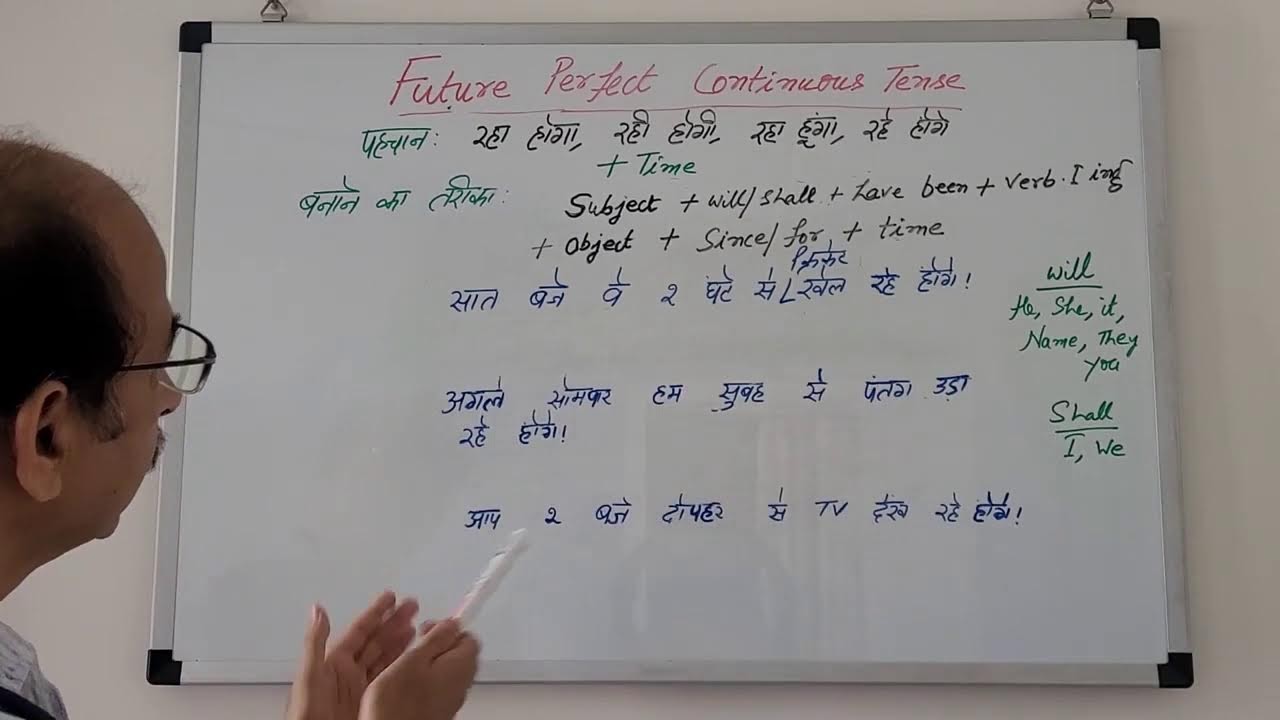 Future Perfect Continuous Tense
पहचान: रहा होगा, रही होगी, रहा हूंगा, रहे होंगे
+ Time
बनाने का तरीका: Subject + will/shall + have been + verb.I ing
+ Object + Since/for + time
क्रिकेट
सात बजे वे २ घंटे से खेल रहे होंगे!
अगले सोमवार हम सुबह से पंतग उड़ा
रहे होंगे!
आप २ बजे दोपहर से TV देख रहे होंगे!
will
He, She, it,
Name, They
you
Shall
I, We